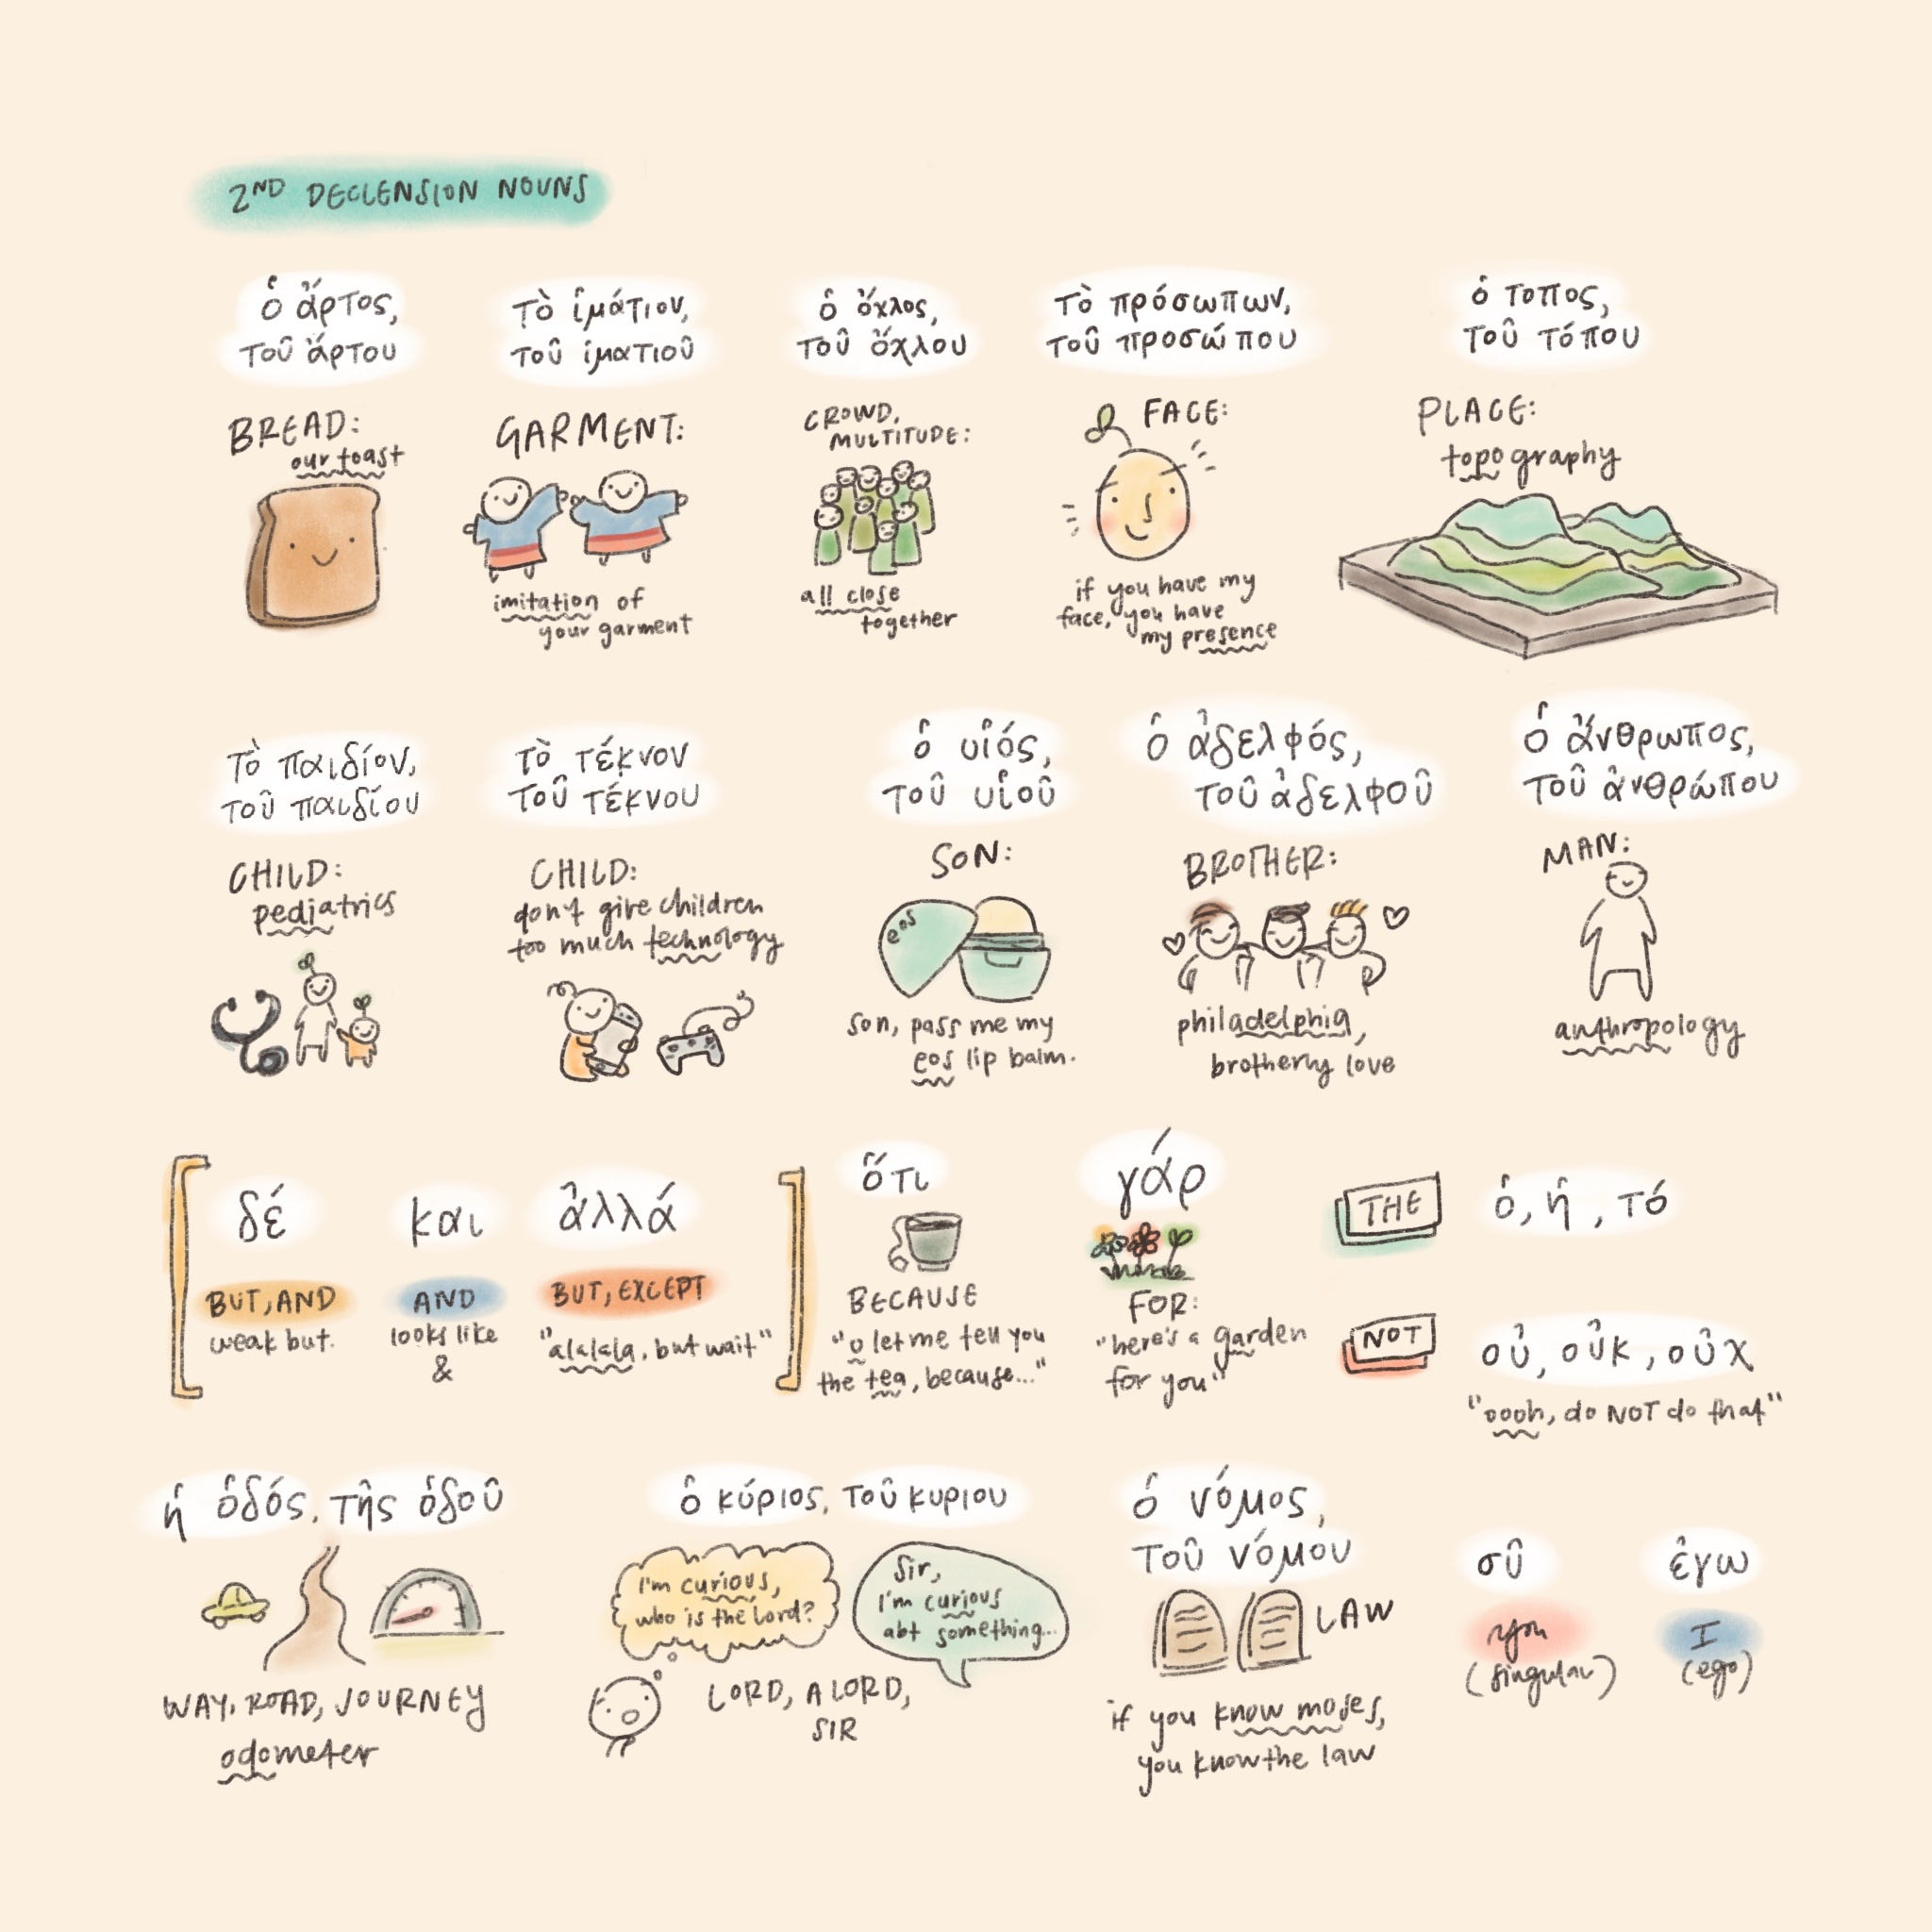 2ND DECLENSION NOUNS
ὁ ἄρτος,
τοῦ ἄρτου
BREAD:
our toast
τὸ ἱμάτιον,
τοῦ ἱματιοῦ
GARMENT:
imitation of
your garment
ὁ ὄχλος,
τοῦ ὄχλου
CROWD,
MULTITUDE:
all close
together
τὸ πρόσωπων,
τοῦ προσώπου
FACE:
if you have my
face, you have
my presence
ὁ τοπος,
τοῦ τόπου
PLACE:
topography
τὸ παιδίον,
τοῦ παιδίου
CHILD:
pediatrics
τὸ τέκνον
τοῦ τέκνου
CHILD:
don't give children
too much technology
ὁ υἱός,
τοῦ υἱοῦ
SON:
eos
son, pass me my
eos lip balm.
ὁ ἀδελφός,
τοῦ ἀδελφοῦ
BROTHER:
philadelphia,
brotherly love
ὁ ἄνθρωπος,
τοῦ ἀνθρώπου
MAN:
anthropology
δέ
BUT, AND
weak but.
και
AND
looks like
&
ἀλλά
BUT, EXCEPT
"alalala, but wait"
ὅτι
BECAUSE
"o let me tell you
the tea, because..."
γάρ
FOR:
"here's a garden
for you"
THE
ὁ, ἡ, τό
NOT
οὐ, οὐκ, οὐχ
"oooh, do NOT do that"
ἡ ὁδός, τῆς ὁδοῦ
WAY, ROAD, JOURNEY
odometer
ὁ κύριος, τοῦ κυριου
I'm curious,
who is the lord?
Sir,
I'm curious
abt something...
LORD, A LORD,
SIR
ὁ νόμος,
τοῦ νόμου
LAW
if you know moses,
you know the law
σῦ
you
(singular)
ἐγω
I
(ego)